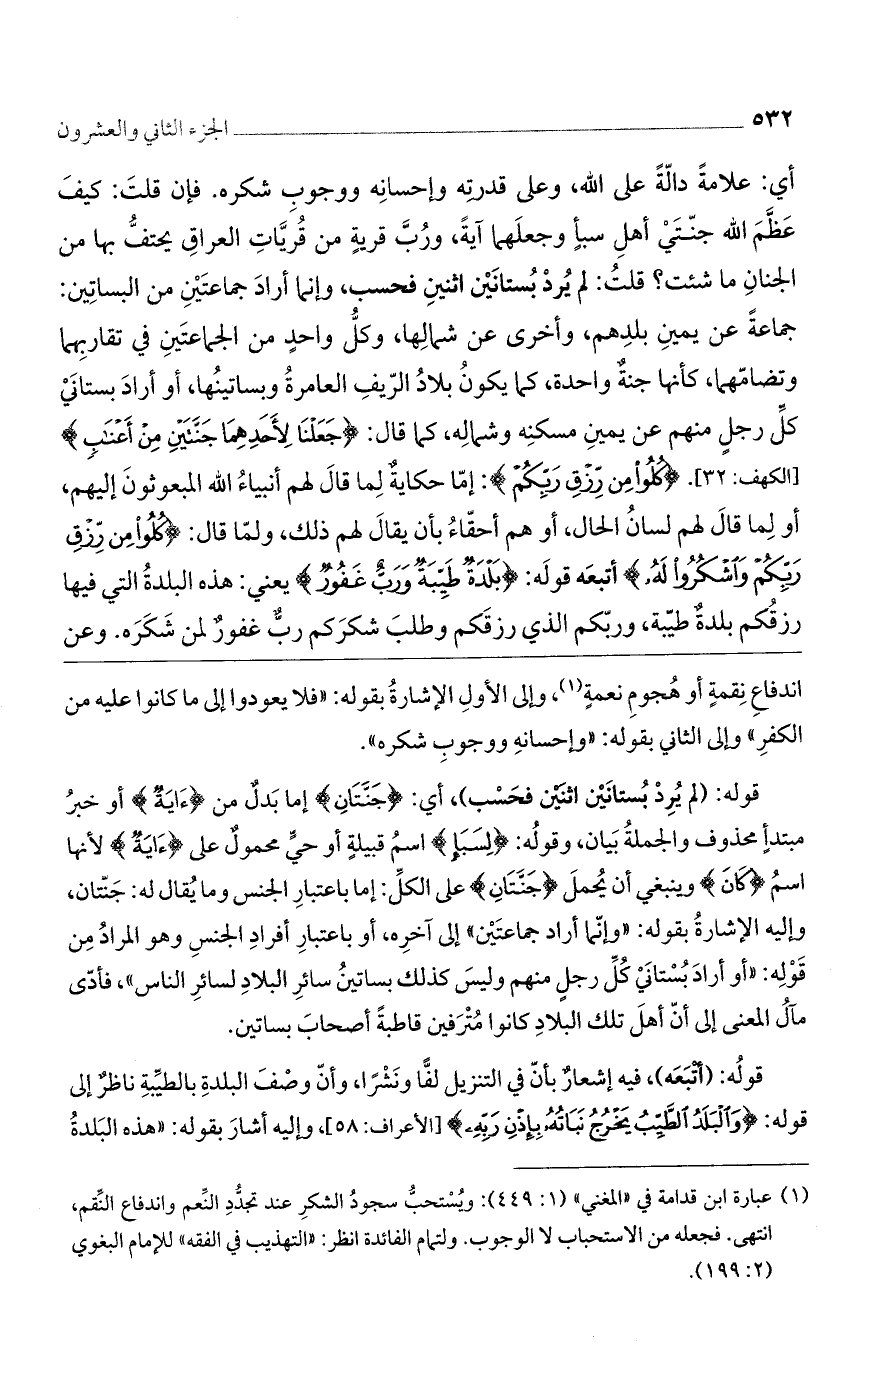 ٥٣٢ الجزء الثاني والعشرون
أي: علامةً دالّةً على الله، وعلى قدرتِه وإحسانِه ووجوبِ شكره. فإن قلتَ: كيفَ
عَظَّمَ الله جنّتَيْ أهلِ سبأٍ وجعلَهما آيةً، ورُبَّ قريةٍ من قُريَّاتِ العراقِ يحتفُّ بها من
الجنانِ ما شئت؟ قلتُ: لم يُردْ بُستانَيْن اثنينِ فحسب، وإنما أرادَ جماعتَيْنِ من البساتِين:
جماعةً عن يمينِ بلدِهم، وأخرى عن شمالِها، وكلُّ واحدٍ من الجماعتَينِ في تقاربِهما
وتضامّهما، كأنها جنةٌ واحدة، كما يكونُ بلادُ الرّيفِ العامرةُ وبساتينُها، أو أرادَ بستانَيْ
كلِّ رجلٍ منهم عن يمينِ مسكنِه وشمالِه، كما قال: ﴿جَعَلْنَا لِأَحَدِهِمَا جَنَّتَيْنِ مِنْ أَعْنَٰبٍ﴾
[الكهف: ٣٢]. ﴿كُلُوا۟ مِن رِّزْقِ رَبِّكُمْ﴾: إمّا حكايةٌ لِما قالَ لهم أنبياءُ الله المبعوثونَ إليهم،
أو لِما قالَ لهم لسانُ الحال، أو هم أحقّاءُ بأن يقالَ لهم ذلك، ولمّا قال: ﴿كُلُوا۟ مِن رِّزْقِ
رَبِّكُمْ وَٱشْكُرُوا۟ لَهُۥ﴾ أتبعَه قولَه: ﴿بَلْدَةٌ طَيِّبَةٌ وَرَبٌّ غَفُورٌ﴾ يعني: هذه البلدةُ التي فيها
رزقُكم بلدةٌ طيّبة، وربّكم الذي رزقَكم وطلبَ شكرَكم ربٌّ غفورٌ لمن شَكَرَه. وعن
اندفاعِ نِقمةٍ أو هُجومِ نعمةٍ(١)، وإلى الأولِ الإشارةُ بقوله: «فلا يعودوا إلى ما كانوا عليه من
الكفرِ» وإلى الثاني بقوله: «وإحسانهِ ووجوبِ شكره».
قوله: (لم يُردْ بُستانَيْن اثنَيْن فحَسْب)، أي: ﴿جَنَّتَانِ﴾ إما بَدلٌ من ﴿ءَايَةٌ﴾ أو خبرُ
مبتدأٍ محذوف والجملةُ بَيان، وقولُه: ﴿لِسَبَإٍ﴾ اسمُ قبيلةٍ أو حيٍّ محمولٌ على ﴿ءَايَةٌ﴾ لأنها
اسمُ ﴿كَانَ﴾ وينبغي أن يُحملَ ﴿جَنَّتَانِ﴾ على الكلِّ: إما باعتبارِ الجنس وما يُقال له: جَنّتان،
وإليه الإشارةُ بقوله: «وإنّما أراد جماعتَيْن» إلى آخرِه، أو باعتبارِ أفرادِ الجنسِ وهو المرادُ مِن
قَوْلِه: «أو أرادَ بُسْتانَيْ كُلِّ رجلٍ منهم وليسَ كذلك بساتينُ سائرِ البلادِ لسائرِ الناس»، فأدّى
مآلُ المعنى إلى أنّ أهلَ تلك البلادِ كانوا مُتْرَفين قاطبةً أصحابَ بساتين.
قولُه: (أَتْبَعَه)، فيه إشعارٌ بأنّ في التنزيل لفًّا ونَشْرًا، وأنّ وصْفَ البلدةِ بالطيِّبةِ ناظرٌ إلى
قوله: ﴿وَٱلْبَلَدُ ٱلطَّيِّبُ يَخْرُجُ نَبَاتُهُۥ بِإِذْنِ رَبِّهِۦ﴾ [الأعراف: ٥٨]، وإليه أشارَ بقوله: «هذه البَلدةُ
(١) عبارة ابن قدامة في «المغني» (١: ٤٤٩): ويُسْتحبُّ سجودُ الشكرِ عند تجدُّدِ النِّعم واندفاع النِّقم،
انتهى. فجعله من الاستحباب لا الوجوب. ولتمام الفائدة انظر: «التهذيب في الفقه» للإمام البغوي
(٢: ١٩٩).